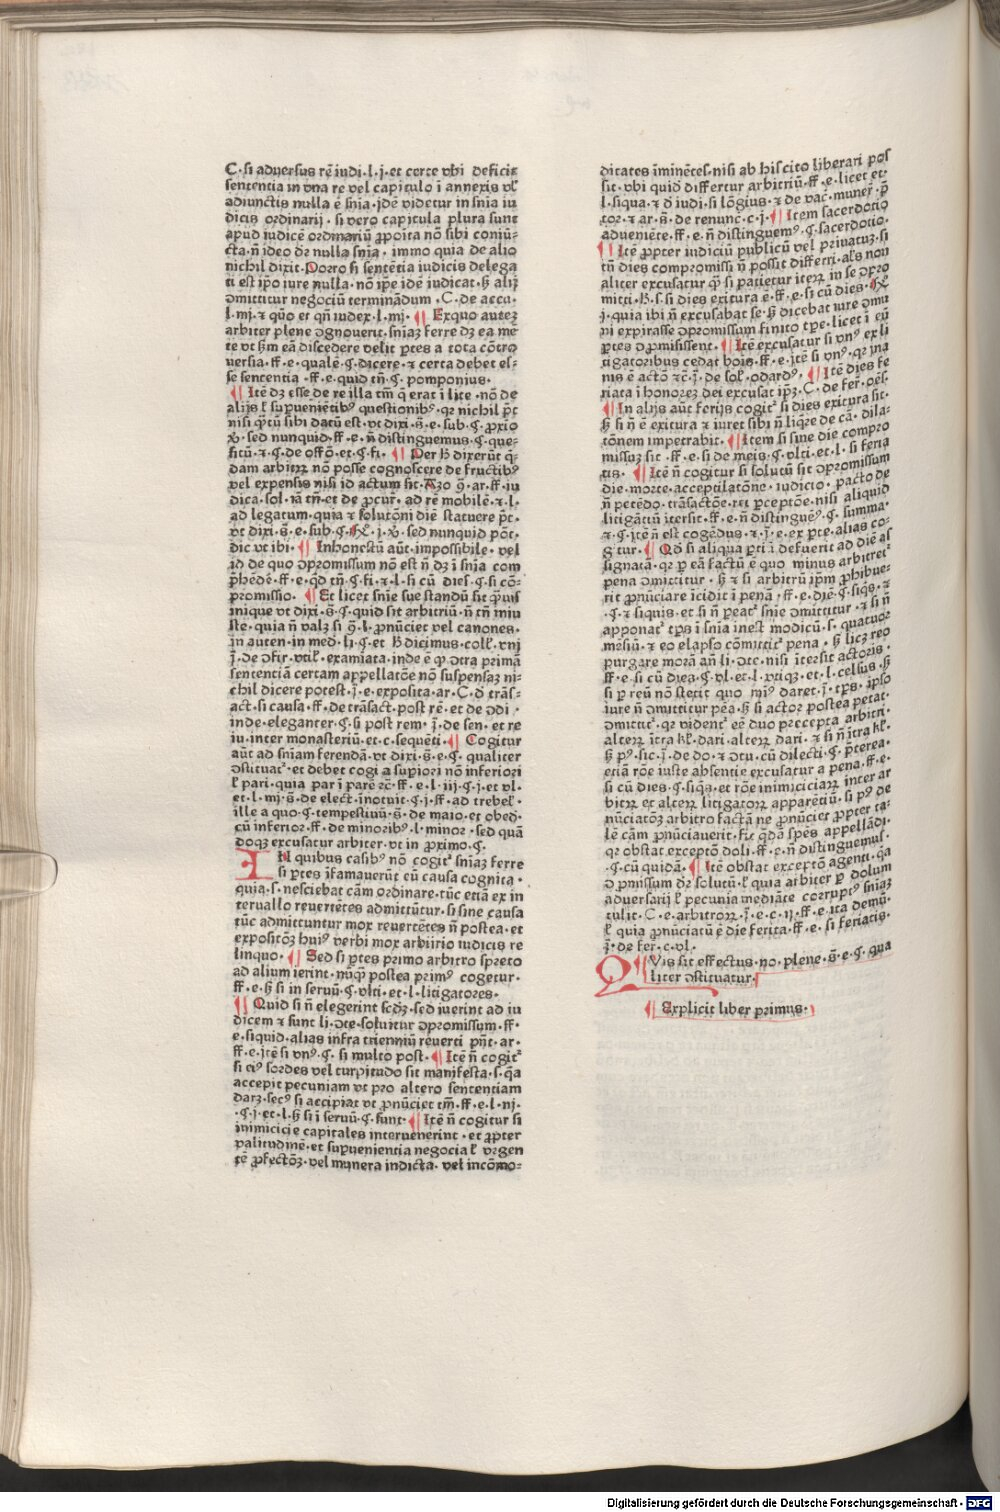 C. si aduersus rē iudi. l. j. et certe vbi deficit
sententia in vna re vel capitulo ī annexis vl̕
adiunctis nulla ē snīa. idē videtur in snīa iu
dicis ordinarij. si vero capitula plura sunt
apud iudicē ordinariū ꝓpoīta nō sibi coniū-
cta. n̄ ideo dr̄ nulla snīa. immo quia de alio
nichil dixit. Porro si sentētia iudicis delega
ti est ip̄o iure nulla. nō ip̄e idē iudicat. ꝫ alij
ꝯmittitur negociū terminādum. C. de accu.
l. mj. ⁊ qūo et qn̄ iudex. l. mj. ¶ Exquo autez
arbiter plene ꝯgnouerit. snīaz ferre dꝫ ea mē
te vt ẜm eā discedere velit ꝑtes a tota cōtro
versia. ff. e. quale. ꝗ. dicere. ⁊ certa debet es-
se sententia. ff. e. quid tn̄. ꝗ. pomponius.
¶ Itē dꝫ esse de re illa tm̄ q̄ erat ī lite. nō de
alijs ł suꝑuenietibꝰ questionibꝰ. qr nichil p̄t
nisi q̄tū sibi datū est. vt dixi. s̄. e. sub. ꝗ. ꝓxīo
ꝟ. sed nunquid. ff. e. n̄ distinguemus. ꝗ. que-
sitū. ⁊ ꝗ. de offō. et. ꝗ. fi. ¶ Per ħ dixerūt q̄-
dam arbitrꝝ nō posse cognoscere de fructibꝰ
vel expensis nisi id actum sit. Azo ꝯ. ar. ff. iu
dica. sol. ia tm̄. et de ꝓcur̄. ad rē mobilē. ⁊ l.
ad legatum. quia ⁊ solutōni diē statuere p̄t.
vt dixi. s̄. e. sub. ꝗ. j. ꝟ. sed nunquid pōt.
dic vt ibi. ¶ Inhonestū aūt. impossibile. vel
id de quo ꝯpromissum nō est n̄ dꝫ ī snīa com
p̄hēdē. ff. e. qd tn̄. ꝗ. fi. ⁊ l. si cū dies. ꝗ. si cō-
promissio. ¶ Et licet snīe sue standū sit q̄uis
inique vt dixi. s̄. ꝗ. quid sit arbitriū. n̄ tn̄ iniu
ste. quia n̄ valꝫ si ꝯ. l. ꝓnūciet vel canones.
in auten. in med. li. ꝗ. et ħ dicimus. coll̕. vnj
j̄. de ꝯfir. vtil̕. examiata. inde ē ꝙ ꝯtra primā
sententiā certam appellatōe nō suspensaz ni-
chil dicere potest. j̄. e. exposita. ar. C. d trās-
act. si causa. ff. de trāsact. post rē. et de ꝯdi.
inde. eleganter. ꝗ. si post rem. j̄. de sen. et re
iu. inter monasteriū. et c. sequēti. ¶ Cogitur
aūt ad snīam ferendā. vt dixi. s̄. e. ꝗ. qualiter
ꝯstituat̕. et debet cogi a supiori nō inferiori
ł pari. quia par ī parē rc̄. ff. e. l. iij. ꝗ. j. et vl.
et. l. mj. s̄. de elect. īnotuit. ꝗ. j. ff. ad trebel̕.
ille a quo. ꝗ. tempestiuū. s̄. de maio. et obed.
cū inferior. ff. de minoribꝰ. l. minor. sed quā
doqꝫ excusatur arbiter. vt in ꝓximo. ꝗ.
IN quibus casibꝰ nō cogit̕ snīaz ferre
si ꝑtes īfamauerūt eū causa cognita.
quia. s. nesciebat cām ordinare. tūc etiā ex in
teruallo reuertētes admittūtur. si sine causa
tūc admittuntur mox reuertētes n̄ postea. et
expositōꝫ huiꝰ verbi mox arbitrio iudicis re
linquo. ¶ Sed si ꝑtes primo arbitro spreto
ad alium ierint. nūq̄ postea primꝰ cogetur.
ff. e. ꝫ si in seruū. ꝗ. vlti. et. l. litigatores.
¶ Quid si n̄ elegerint scd̄ꝫ. sed iuerint ad iu
dicem ⁊ sunt li. ꝯte. soluitur ꝯpromissum. ff.
e. siquid. alias infra trienniū reuerti pn̄t. ar.
ff. e. itē si vnꝰ. ꝗ. si multo post. ¶ Itē n̄ cogit̕
si eiꝰ sordes vel turpitudo sit manifesta. s. q̄a
accepit pecuniam vt pro altero sententiam
darꝫ. secꝰ si accipiat vt ꝓnūciet tm̄. ff. e. l. nj.
ꝗ. j. et. l. ꝫ si ī seruū. ꝗ. sunt. ¶ Itē n̄ cogitur si
inimicicie capitales interuenerint. et ꝓpter
valitudinē. et supuenientia negocia ł vrgen
tē ꝓfectōꝫ. vel munera indicta. vel incōmo-
ditates īminētes. nisi ab his cito liberari pos
sit. vbi quid differtur arbitriū. ff. e. licet et.
l. siqua. ⁊ d iudi. si lōgius. ⁊ de vac̄. muner̄. ꝓ
tor. ⁊ ar. s̄. de renunc. c. j. ¶ Item sacerdotio
adueniēte. ff. e. n̄ distinguemꝰ. ꝗ. sacerdotio.
¶ Itē ꝓpter iudiciū publicū vel priuatuꝫ. si
tn̄ dies compromissi n̄ possit differri. al̕s non
aliter excusatur q̄ si patietur iterꝝ in se ꝯpro
mitti. ħ. s. si dies exitura ē. ff. e. si cū dies.
j. quia ibi n̄ excusabat se. ꝫ dicebat iure ꝯmu
ni expirasse ꝯpromissum finito tꝑe. licet ī eū
ꝑtes ꝯpromisissent. ¶ Itē excusatur si vnꝰ ex li
tigatoribus cedat bois. ff. e. itē si vnꝰ. qr ina
nis ē actō ⁊c̄. j̄. de sol̕. odardꝰ. ¶ Itē dies fe
riata ī honorez dei excusat ip̄ꝫ. C. de fer̄. oēs.
¶ In alijs aūt ferijs cogit̕ si dies exitura sit.
ꝫ si n̄ ē exitura ⁊ iuret sibi n̄ liq̄re de cā. dila-
tōnem impetrabit. ¶ Item si sine die compro
missuꝫ sit. ff. e. si de meis. ꝗ. vlti. et. l. si feria
tis. ¶ Itē n̄ cogitur si solutū sit ꝯpromissum
die. morte. acceptilatōne. iudicio. pacto de
n̄ petēdo. trāsactōe. rei ꝑceptōe. nisi aliquid
litigātiū ītersit. ff. e. n̄ distinguēꝰ. ꝗ. summa.
⁊ ꝗ. itē n̄ est cogēdus. ⁊ j̄. e. ex ꝑte. alias co-
gitur. ¶ Qd si aliqua ꝑti ī defuerit ad diē as
signatā. qr ꝑ eā factū ē quo minus arbitret̕
pena ꝯmittitur. ꝫ ⁊ si arbitrū ip̄m ꝓhibue-
rit ꝓnūciare īcidit ī penā. ff. e. diē. ꝗ. siq̄s. ⁊
ꝗ. ⁊ siquis. et si n̄ pareat̕ snīe ꝯmittitur. ⁊ si n̄
apponat̕ tꝑs ī snīa inest modicū. s. quatuor
mēsiū. ⁊ eo elapso cōmittit̕ pena. ꝫ licꝫ reo
purgare morā an̄ li. ꝯte. nisi ītersit actoris.
ff. e. si cū dies. ꝗ. vl. et. l. vtiqꝫ. et. l. celsus. ꝫ
si ꝑ reū nō stetit quo minꝰ daret. j̄. tꝑs. ipso
iure n̄ ꝯmittitur pēa. ꝫ si actor postea petat.
ꝯmittit̕. qr vident̕ eē duo precepta arbitri.
alterꝝ ītra kl̕. dari. alterꝝ dari. ⁊ si n̄ ītra kl̕.
ꝫ pꝰ. sic. j̄. de do. ⁊ ꝯtu. cū dilecti. ꝗ. p̄terea.
etiā rōe iuste absentie excusatur a pena. ff. e.
si cū dies. ꝗ. siq̄s. et rōe inimiciciarꝝ inter ar
bitrꝝ et alterꝝ litigatorꝝ apparētiū. si pꝰ de
nūciatōꝫ arbitro factā ne ꝓnūciet ꝓpter ta-
lē cām ꝓnūciauerit. fit q̄dā spēs appellādi.
qr obstat exceptō doli. ff. e. n̄ distinguemus.
ꝗ. cū quidā. ¶ Itē obstat exceptō agenti. q̄a
ꝯpmissum dr̄ solutū. ł quia arbiter ꝑ dolum
aduersarij ł pecunia mediāte corruptꝰ snīaz
tulit. C. e. arbitrorꝝ. j̄. e. c. ij. ff. e. ita demū.
ł quia ꝓnūciatū ē die ferita. ff. e. si feriatis.
j̄. de fer. c. vl.
QVis sit effectus. no. plene. s̄. e. ꝗ. qua
liter ꝯstituatur.
¶ Explicit liber primus.
Digitalisierung gefördert durch die Deutsche Forschungsgemeinschaft - DFG